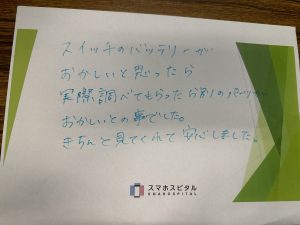 スイッチのバッテリーが
おかしいと思ったら
実際調べてもらったら別のパーツが
おかしいとの事でした。
きちんと見てくれて安心しました。
スマホスピタル
SMAHOSPITAL